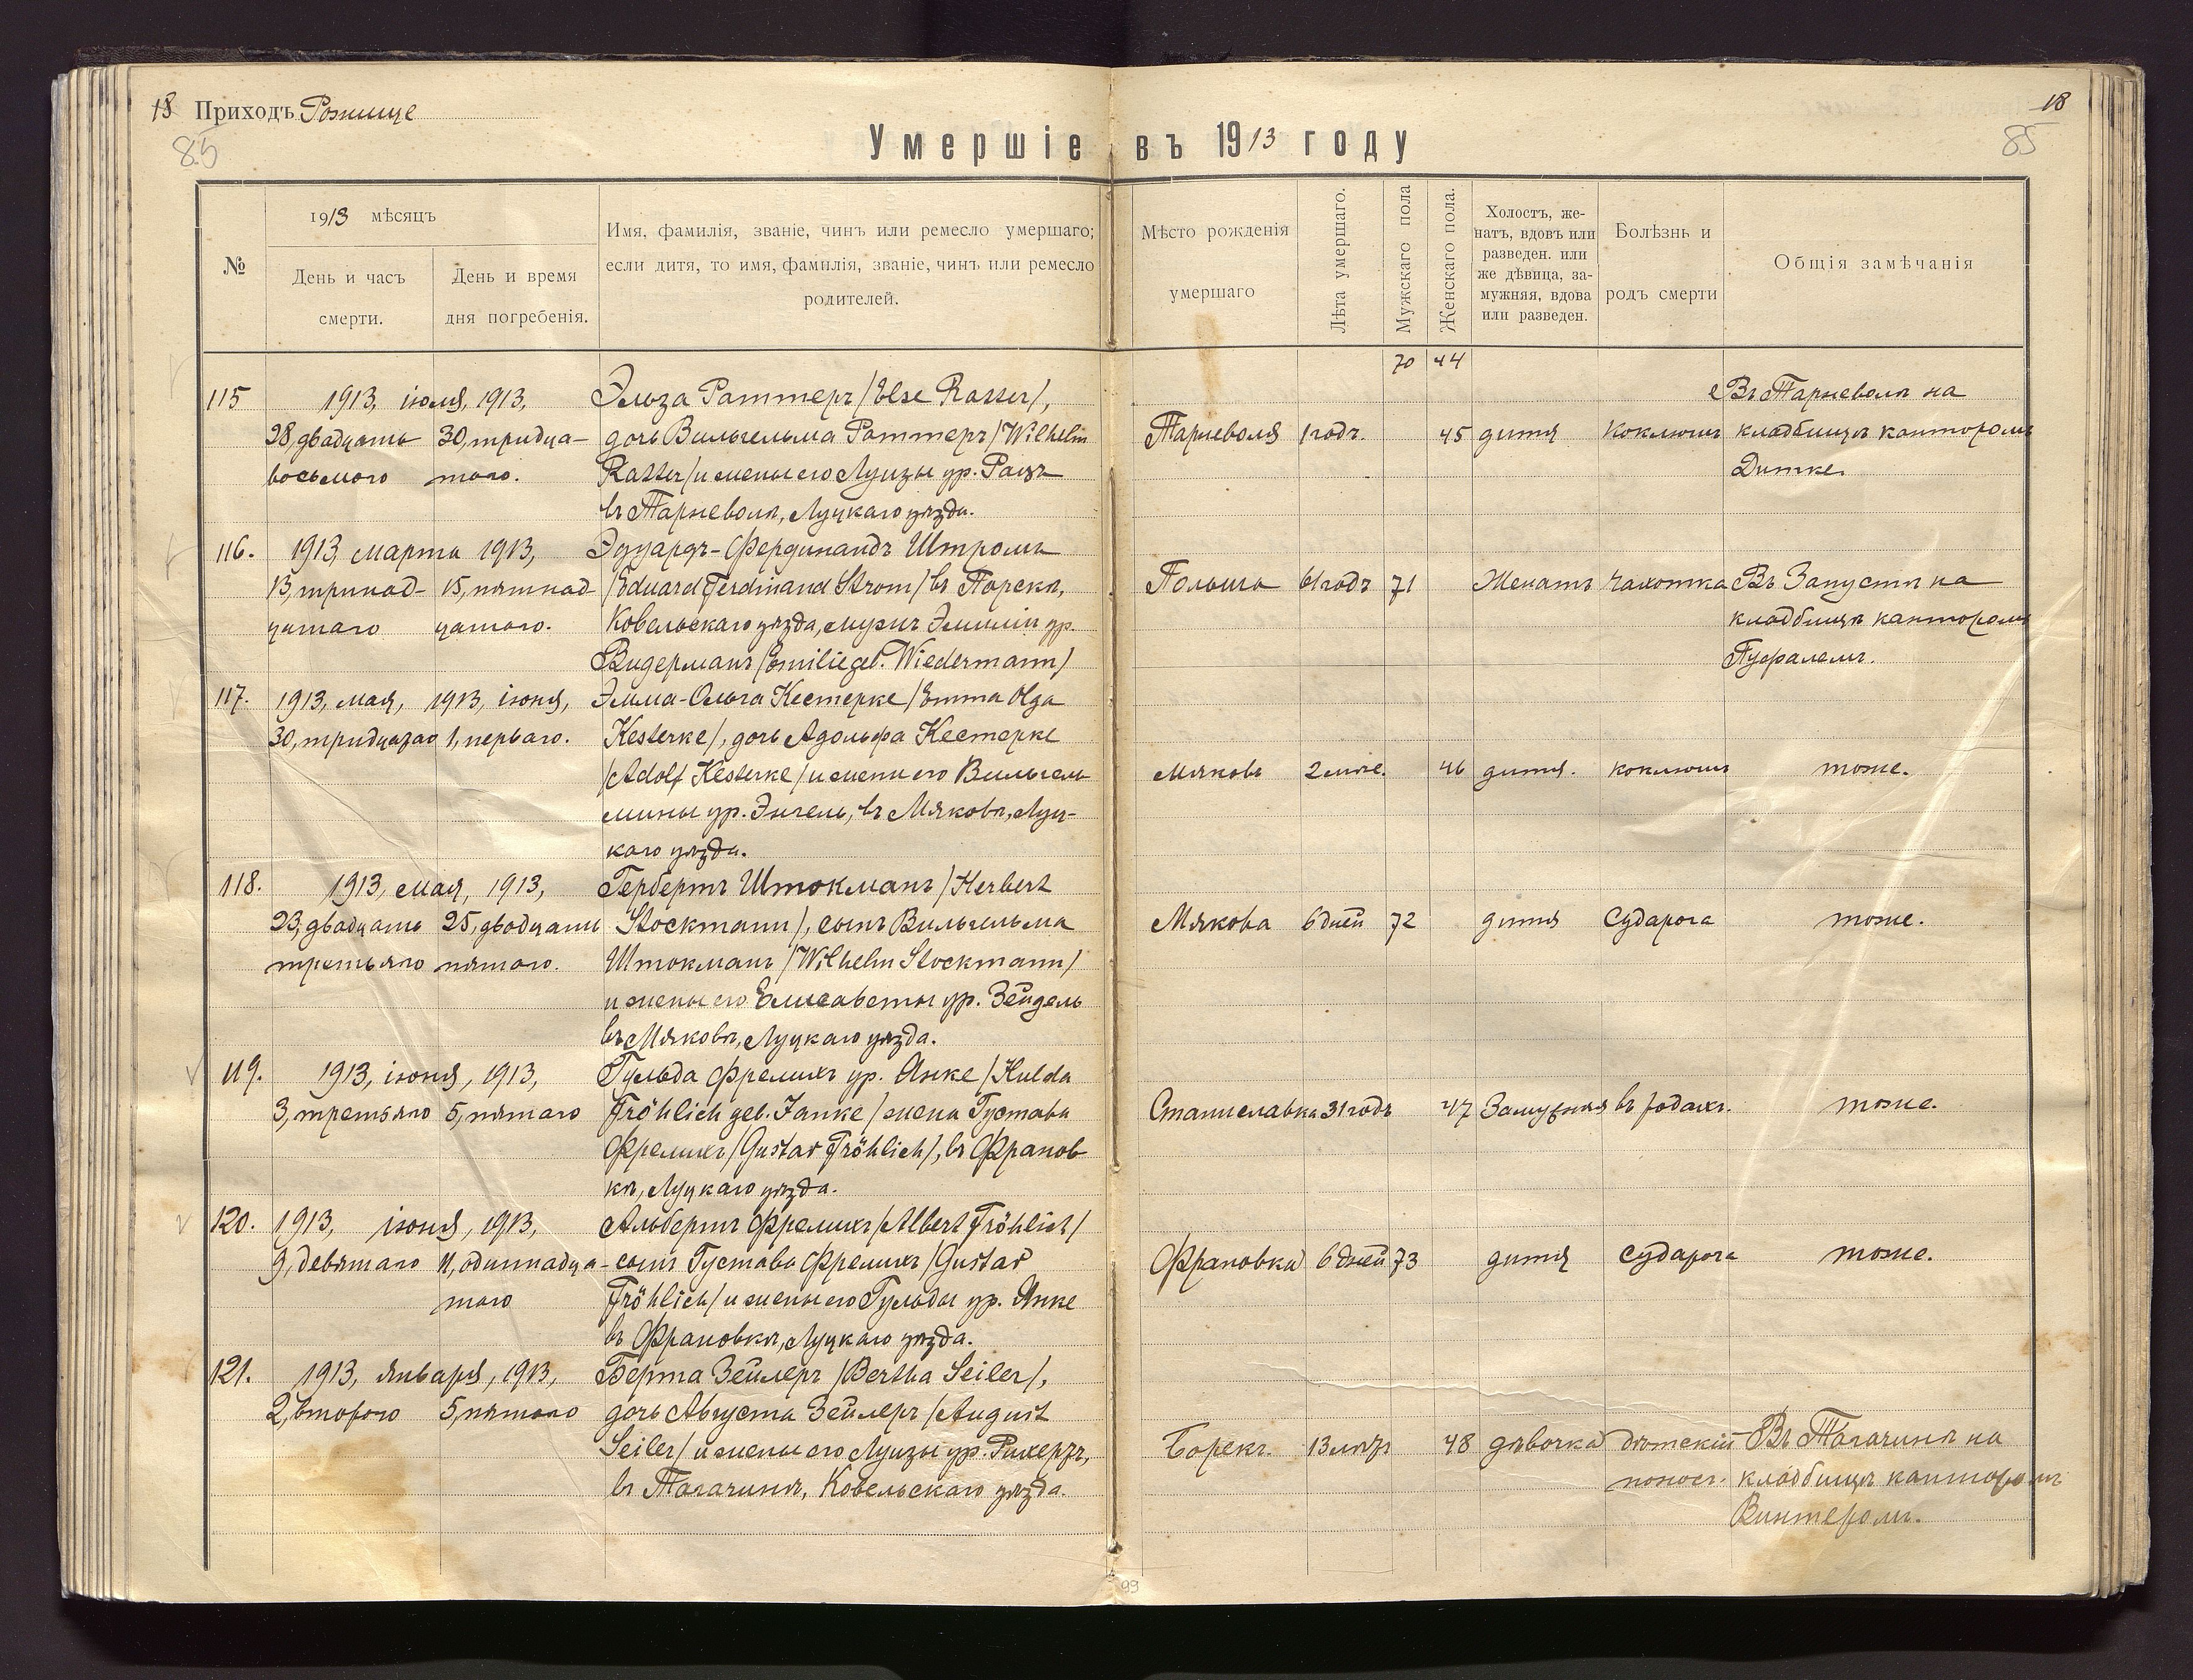 18 Приходъ Рожище
85
18
85
Умершіе въ 1913 году
№
1913 мѣсяцъ
День и часъ смерти.
День и время дня погребенія.
Имя, фамилія, званіе, чинъ или ремесло умершаго;
если дитя, то имя, фамилія, званіе, чинъ или ремесло
родителей.
Мѣсто рожденія
умершаго
Лѣта умершаго.
Мужскаго пола
Женскаго пола.
Холостъ, же-
натъ, вдовъ или
разведен. или
же дѣвица, за-
мужняя, вдова
или разведен.
Болѣзнь и
родъ смерти
Общія замѣчанія
70 44
115 1913, іюля, 1913, Эльза Раттеръ /Else Ratter/, Въ Тарневолѣ на
28, двадцать 30, тридца- дочь Вильгельма Раттеръ /Wilhelm Тарневоля 1 годъ. 45 дитя Коклюшъ кладбищѣ канторомъ
восьмого таго. Ratter/ и жены его Луизы ур. Рацъ Дитке.
въ Тарневолѣ, Луцкаго уѣзда.
116. 1913, марта 1913, Эдуардъ-Фердинандъ Штромъ
13, тринад- 15, пятнад /Eduard Ferdinand Strom/ въ Порскѣ, Польша 61 годъ 71 Женатъ Чахотка Въ Запустѣ на
цатаго цатаго. Ковельскаго уѣзда, мужъ Эмиліи ур. кладбищѣ канторомъ
Видерманъ /Emilie geb. Wiedermann/ Пуфалемъ.
117. 1913, мая, 1913, іюня, Эмма-Ольга Кестерке /Emma Olga
30, тридцатаго 1, перваго. Kesterke/, дочь Адольфа Кестерке
/Adolf Kesterke/ и жены его Вильгель- Мяковъ 2 мѣс. 46 дитя. коклюшъ тоже.
мины ур. Энгель, въ Мяковѣ, Луц-
каго уѣзда.
118. 1913, мая, 1913, Гербертъ Штокманъ /Herbert
23, двадцать 25, двадцать Stockmann/, сынъ Вильгельма Мякова 6 дней 72 дитя Судорога тоже.
третьяго пятаго. Штокманъ /Wilhelm Stockmann/
и жены его Елисаветы ур. Зейдель
въ Мяковѣ, Луцкаго уѣзда.
119. 1913, іюня, 1913, Гульда Фрелихъ ур. Янке /Hulda
3, третьяго 5, пятаго Fröhlich geb. Janke/ жена Густава Станиславка 31 годъ 47 Замужняя въ родахъ. тоже.
Фрелихъ /Gustav Fröhlich/, въ Франов-
кѣ, Луцкаго уѣзда.
120. 1913, іюня, 1913, Альбертъ Фрелихъ /Albert Fröhlich/
9, девятаго 11, одиннадца- сынъ Густава Фрелихъ /Gustav Франовка 6 дней 73 дитя судорога тоже.
таго Fröhlich/ и жены его Гульды ур. Янке
въ Франовкѣ, Луцкаго уѣзда.
121. 1913, января, 1913, Берта Зейлеръ /Bertha Seiler/,
2, второго 5, пятаго дочь Августа Зейлеръ /August
Seiler/ и жены его Луизы ур. Рихертъ, Борекъ. 13 лѣтъ 48 дѣвочка дѣтскій Въ Тагачинѣ на
въ Тагачинѣ, Ковельскаго уѣзда. поносъ. кладбищѣ канторомъ
Винтеромъ.
99